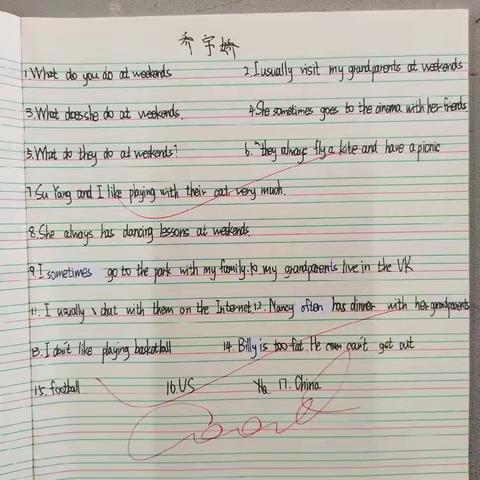 乔宇娇
1.What do you do at weekends 2.I usually visit my grandparents at weekends
3.What does she do at weekends. 4.She sometimes goes to the cinema with her friends.
5.What do they do at weekends? 6.They always fly a kite and have a picnic
7.Su Yang and I like playing with their cat very much.
8.She always has dancing lessons at weekends.
9.I sometimes go to the park with my family.10.my grandparents live in the UK
11.I usually chat with them on the Internet.12.Nancy often has dinner with her grandparents
13.I don't like playing basketball 14.Billy is too fat. He can't get out
15.football 16.US 17.China
Good